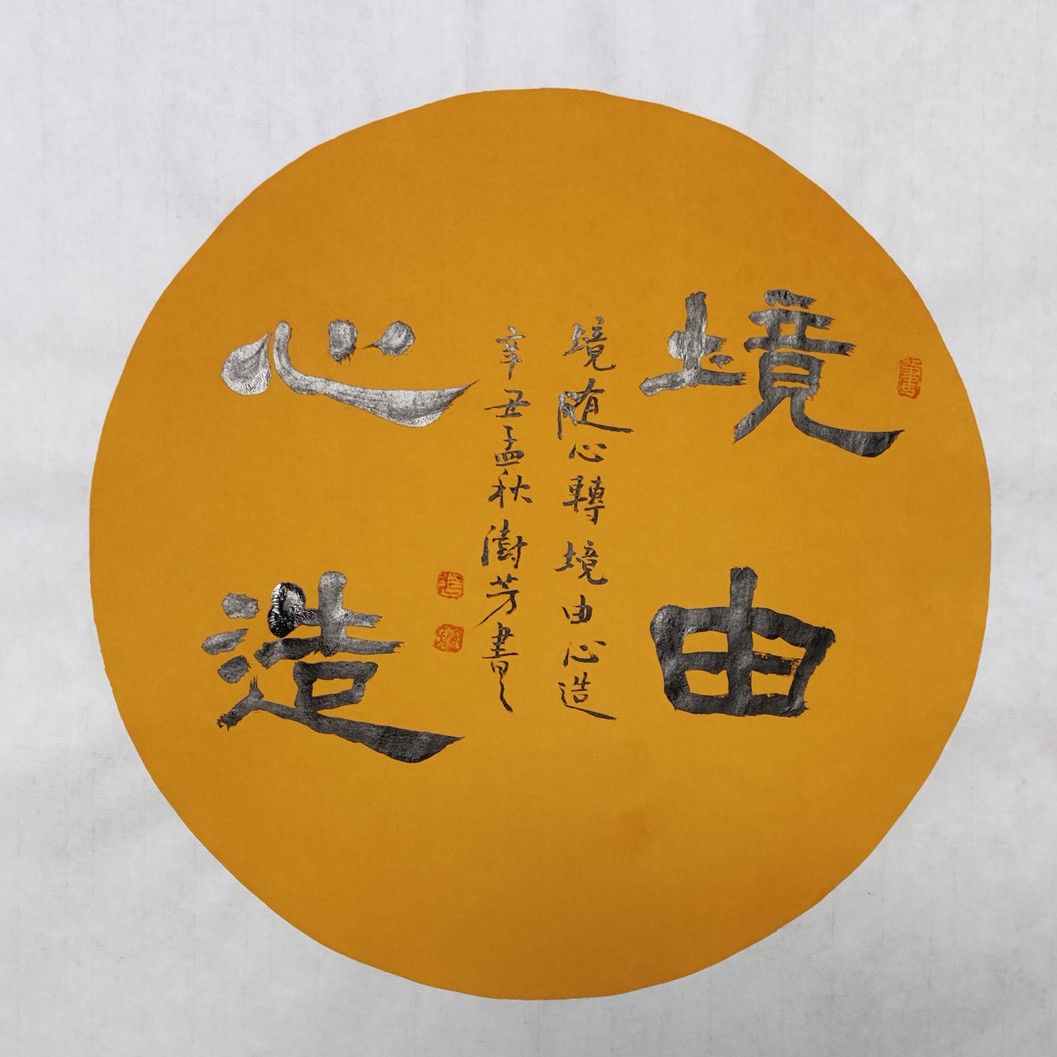 境由
心造
境随心轉境由心造
辛丑孟秋澍芳書